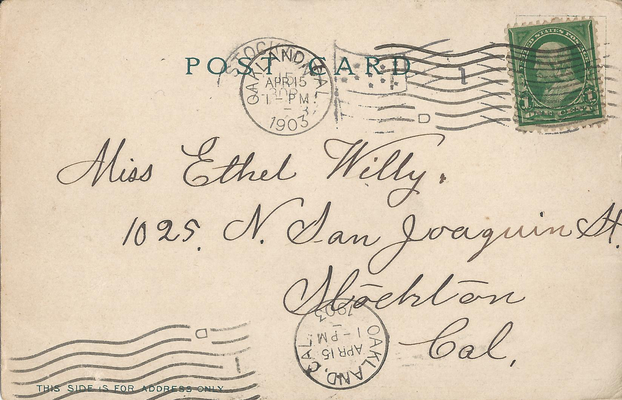 POST CARD
STOCKTON, CAL.
OAKLAND, CAL.
APR 15
1-PM
1903
D
1
UNITED STATES POSTAGE
1 ONE CENT 1
Miss Ethel Willy.
1025. N. San Joaquin St.
Stockton
Cal.
OAKLAND, CAL.
APR 15
1-PM
1903
D
1
THIS SIDE IS FOR ADDRESS ONLY